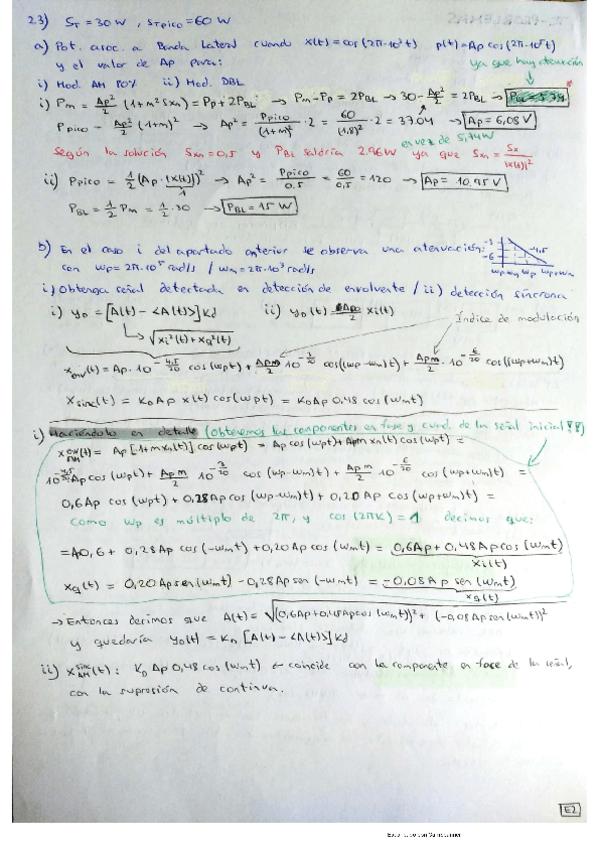 23) ST = 30 W , STpico = 60 W
a) Pot. asoc. a Banda Lateral cuando x(t) = cos(2π·10³t) p(t) = Ap cos(2π·10⁵t)
y el valor de Ap para:
ya que hay atenuación
i) Mod. AM 80% ii) Mod. DBL
i) Pm = Ap²/2 (1+m² Sxn) = Pp + 2PBL → Pm - Pp = 2PBL → 30 - Ap²/2 = 2PBL →
Ppico = Ap²/2 (1+m)² → Ap² = Ppico/(1+m)² · 2 = 60/(1,8)² · 2 = 37.04 → Ap = 6,08 V
en vez de 5,74W
Según la solución Sxn = 0,5 y PBL saldría 2.96W ya que Sxn = Sx/|x(t)|²
ii) Ppico = 1/2 (Ap·|x(t)|)² → Ap² = Ppico/0.5 = 60/0,5 = 120 → Ap = 10.95 V
1
PBL = 1/2 Pm = 1/2 · 30 → PBL = 15 W
b) En el caso i del apartado anterior se observa una atenuación:
con wp = 2π·10⁵ rad/s / wm = 2π·10³ rad/s
-3
-6
-4,5
wp-wm wp wp+wm
i) Obtenga señal detectada en detección de envolvente / ii) detección síncrona
i) yD = [A(t) - <A(t)>] Kd ii) yD(t) = xi(t)
√(xi²(t) + xq²(t))
Índice de modulación
xenv(t) = Ap·10^(-4,5/20) cos(wpt) + Apm/2 10^(-3/20) cos((wp-wm)t) + Apm/2 · 10^(-6/20) cos((wp+wm)t)
xsinc(t) = KD Ap x(t) cos(wpt) = KD Ap 0,48 cos(wmt)
i) Haciéndolo en detalle (obtenemos las componentes en fase y cuad. de la señal inicial!!)
xAM(t) = Ap [1+mxn(t)] cos(wpt) = Ap cos(wpt) + Apm xn(t) cos(wpt) =
10^(-4,5/20) Ap cos(wpt) + Ap m/2 10^(-3/20) cos(wp-wm)t) + Ap m/2 10^(-6/20) cos(wp+wm)t) =
0,6Ap cos(wpt) + 0,28Ap cos(wp-wm)t) + 0,20 Ap cos(wp+wm)t) =
como wp es múltiplo de 2π, y cos(2πk) = 1 decimos que:
= A0,6 + 0,28Ap cos(-wmt) + 0,20 Ap cos(wmt) = 0,6Ap + 0,48Ap cos(wmt)
xi(t)
xq(t) = 0,20 Ap sen(wmt) - 0,28Ap sen(-wmt) = -0,08Ap sen(wmt)
xq(t)
→ Entonces decimos que A(t) = √((0,6Ap+0,48Apcos(wmt))² + (-0,08Ap sen(wmt))²
y quedaría yD(t) = KD [A(t) - <A(t)>] Kd
ii) xAM sinc (t): KD Ap 0,48 cos(wmt) ← coincide con la componente en fase de la señal,
con la supresión de continua.
E2